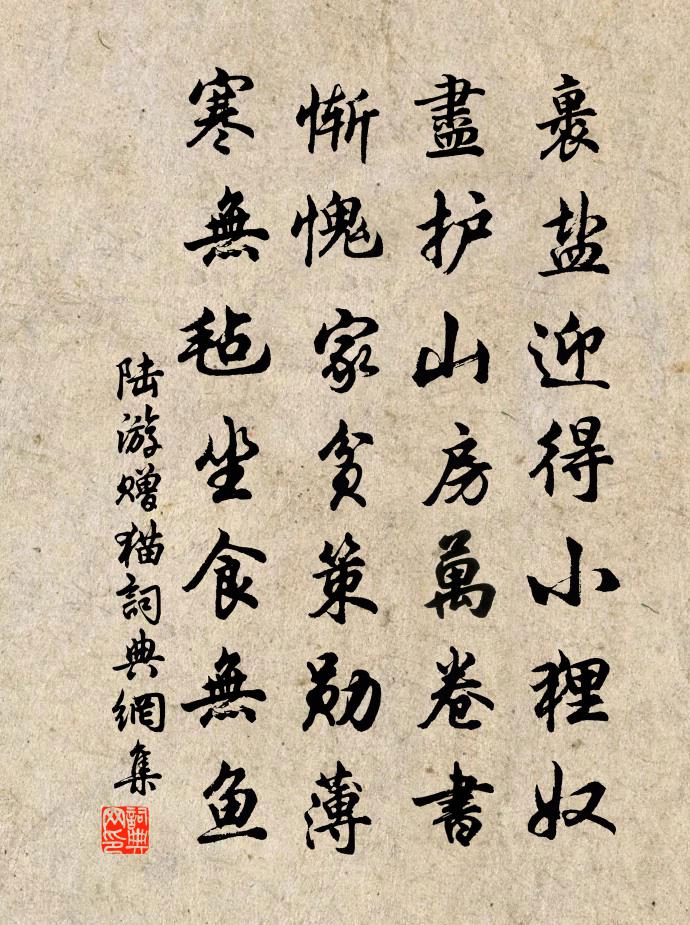 裹盐迎得小狸奴
盡护山房萬卷書
惭愧家貧策勋薄
寒無毡坐食無鱼
陆游赠猫詞典網集
詞典网印